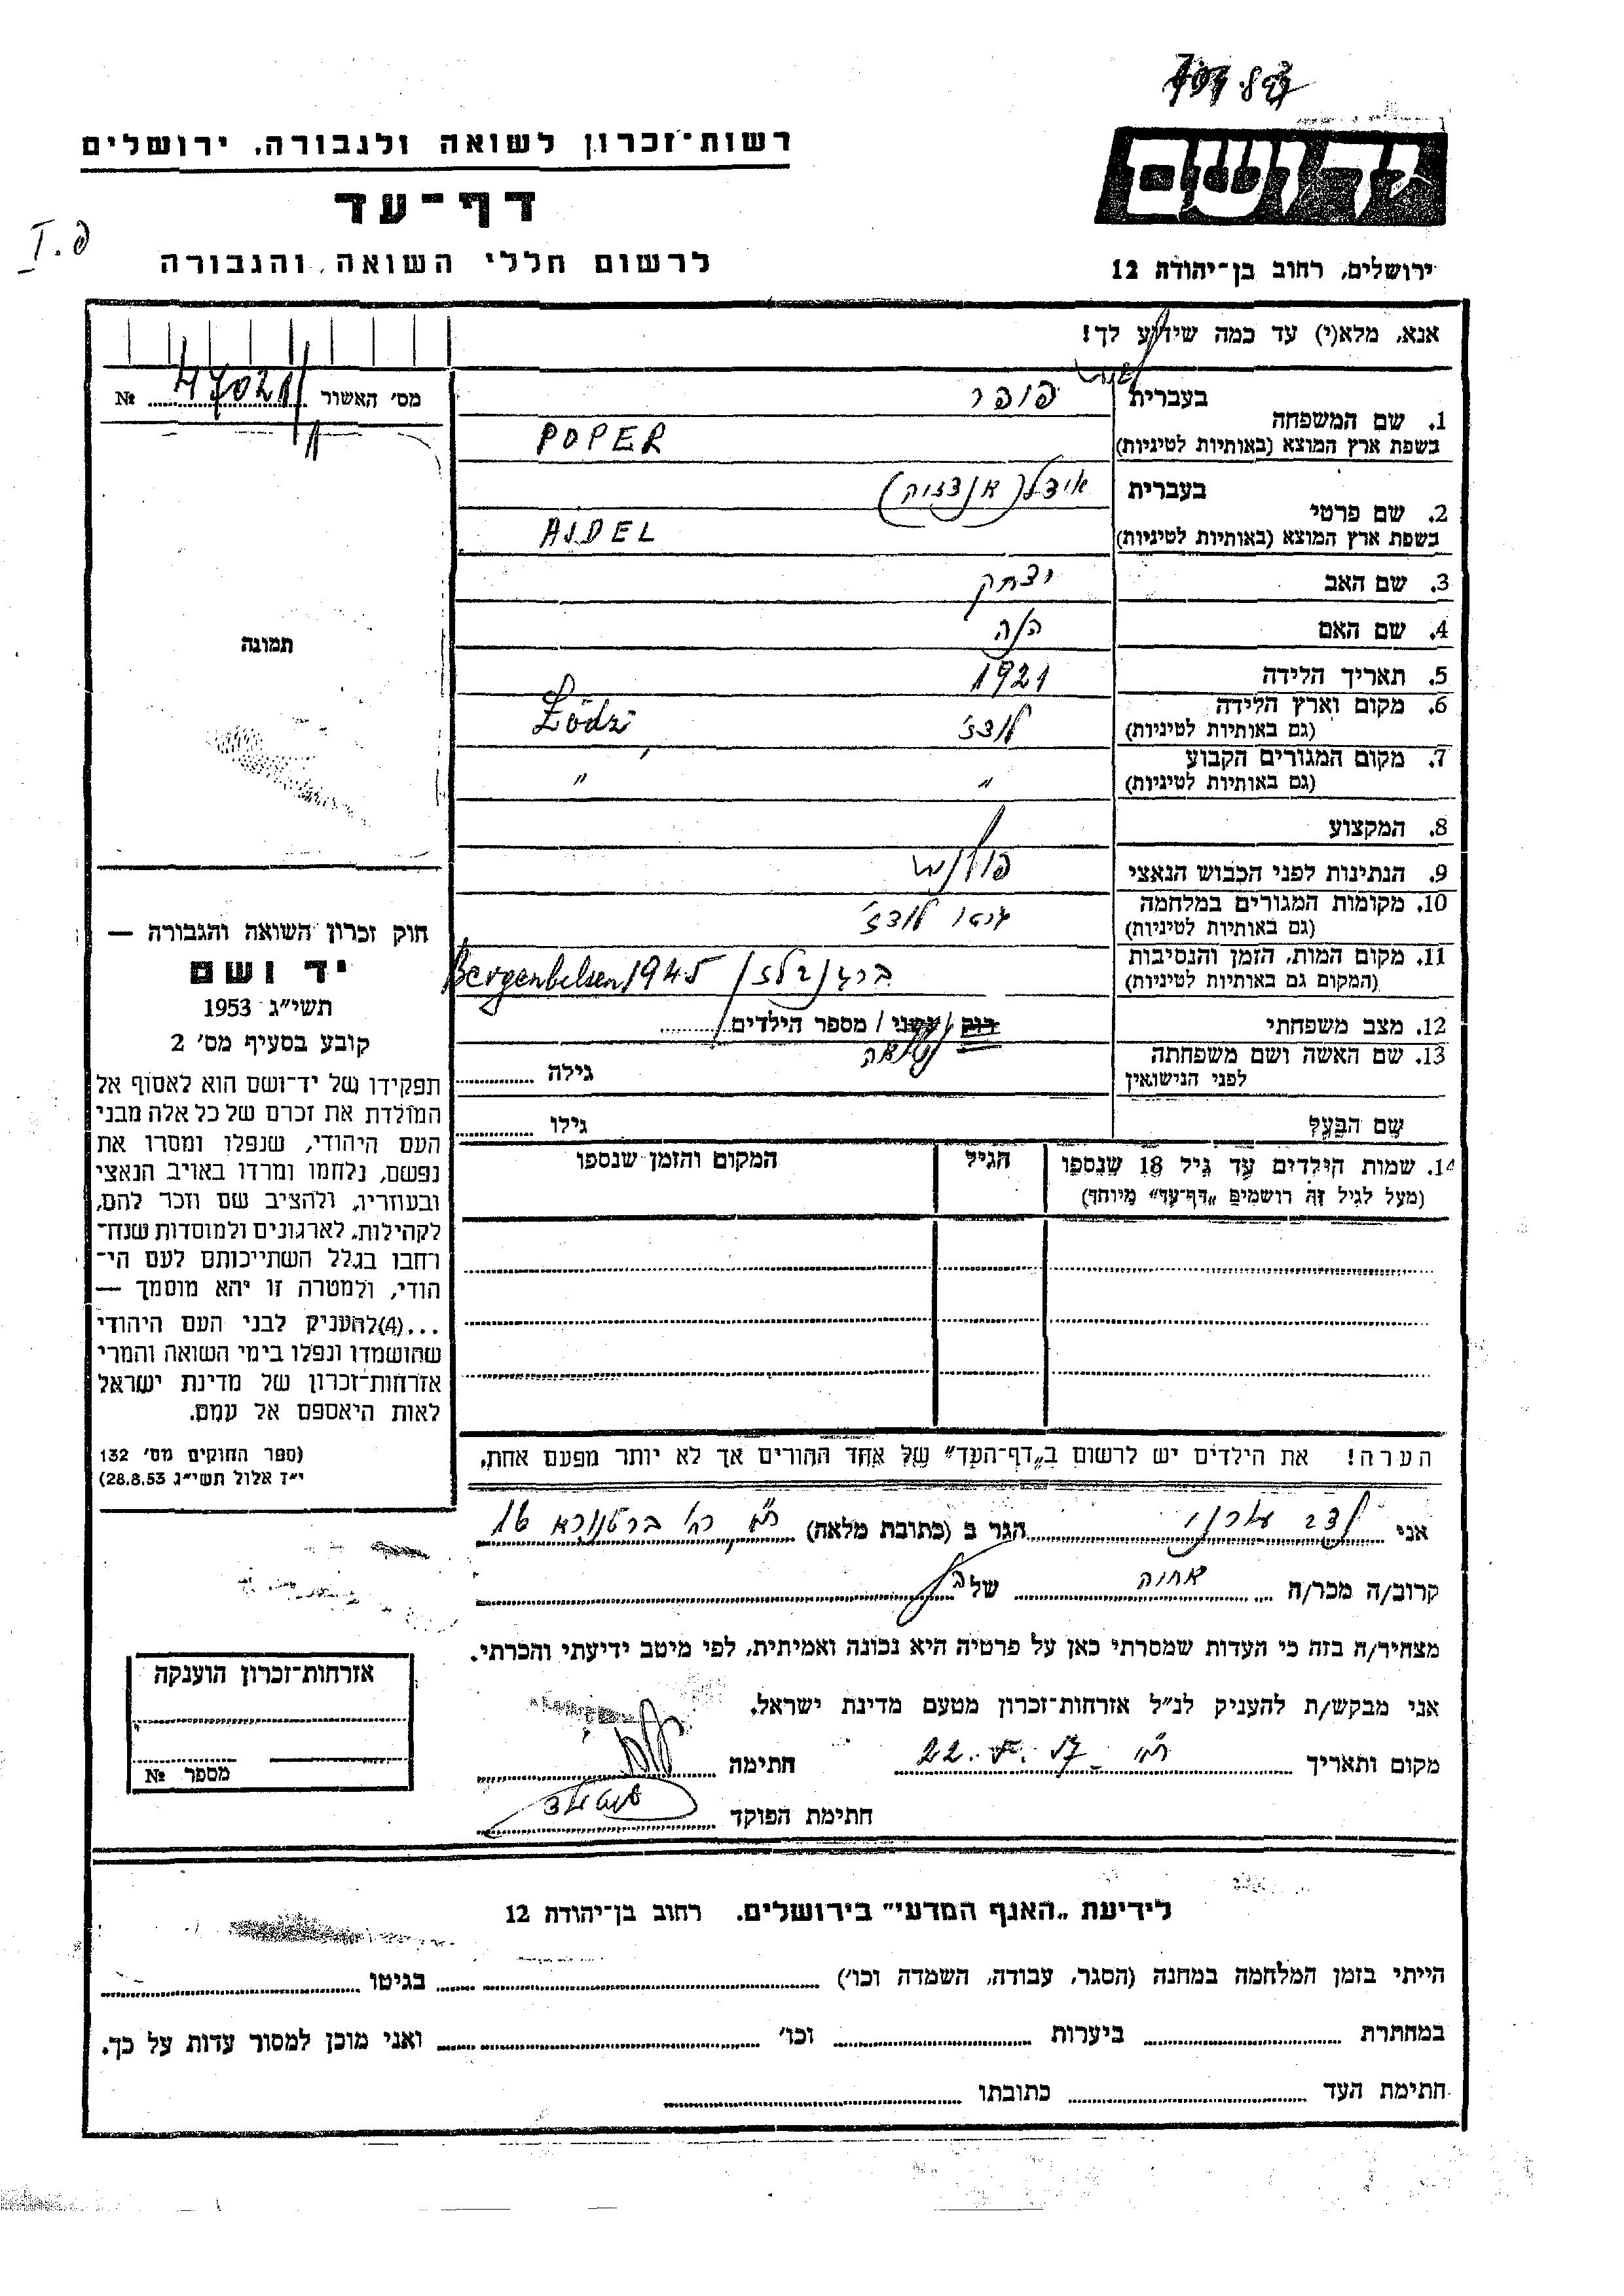 רשות־זכרון לשואה ולגבורה, ירושלים
דף־עד
לרשום חללי השואה והגבורה
יד ושם
ירושלים, רחוב בן־יהודה 12
פ.I
אנא, מלא(י) עד כמה שידוע לך!
מס' האשור № 47021
1. שם המשפחה
בעברית פופר
בשפת ארץ המוצא (באותיות לטיניות) POPER
2. שם פרטי
בעברית אידל
בשפת ארץ המוצא (באותיות לטיניות) AJDEL
3. שם האב יצחק
4. שם האם
5. תאריך הלידה 1921
6. מקום וארץ הלידה
(גם באותיות לטיניות) לודז' Łódź
7. מקום המגורים הקבוע
(גם באותיות לטיניות) " "
8. המקצוע
9. הנתינות לפני הכבוש הנאצי
10. מקומות המגורים במלחמה
(גם באותיות לטיניות) גיטו לודז'
11. מקום המות, הזמן והנסיבות
(המקום גם באותיות לטיניות) ברגן בלזן 1945 Bergenbelsen
12. מצב משפחתי רוק / נשוי / מספר הילדים
נשואה
13. שם האשה ושם משפחתה
לפני הנישואין גילה
שם הבעל גילו
14. שמות הילדים עד גיל 18 שנספו
(מעל לגיל זה רושמים „דף־עד" מיוחד)
הגיל
המקום והזמן שנספו
הערה! את הילדים יש לרשום ב„דף־העד" של אחד ההורים אך לא יותר מפעם אחת.
תמונה
חוק זכרון השואה והגבורה —
יד ושם
תשי"ג 1953
קובע בסעיף מס' 2
תפקידו של יד־ושם הוא לאסוף אל
המולדת את זכרם של כל אלה מבני
העם היהודי, שנפלו ומסרו את
נפשם, נלחמו ומרדו באויב הנאצי
ובעוזריו, ולהציב שם וזכר להם,
לקהילות, לארגונים ולמוסדות שנח־
רחבו בגלל השתייכותם לעם הי־
הודי, ולמטרה זו יהא מוסמך —
...(4)להעניק לבני העם היהודי
שהושמדו ונפלו בימי השואה והמרי
אזרחות־זכרון של מדינת ישראל
לאות היאספם אל עמם.
(ספר החוקים מס' 132
י"ז אלול תשי"ג 28.8.53)
אני הגר ב (כתובת מלאה) ת"א רח' ברטנורא
קרוב/ה מכר/ה אחות של
מצהיר/ה בזה כי העדות שמסרתי כאן על פרטיה היא נכונה ואמיתית, לפי מיטב ידיעתי והכרתי.
אני מבקש/ת להעניק לנ"ל אזרחות־זכרון מטעם מדינת ישראל.
מקום ותאריך ת"א 22. חתימה
חתימת הפוקד
אזרחות־זכרון הוענקה
מספר №
לידיעת „האגף המדעי" בירושלים. רחוב בן־יהודה 12
הייתי בזמן המלחמה במחנה (הסגר, עבודה, השמדה וכו') בגיטו
במחתרת ביערות וכו' ואני מוכן למסור עדות על כך.
חתימת העד כתובתו